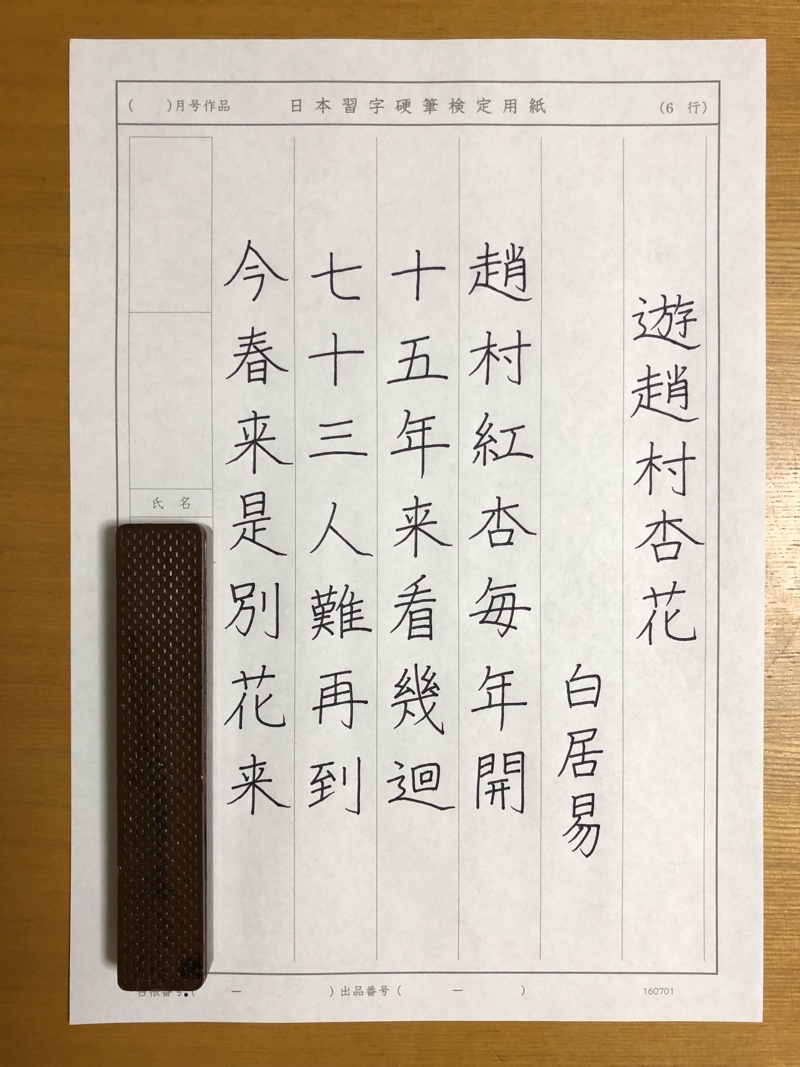 ( )月号作品 日本習字硬筆検定用紙 (6 行)
遊趙村杏花
白居易
趙村紅杏毎年開
十五年来看幾迴
七十三人難再到
今春来是別花来
氏名
( ー )出品番号( ー )
160701